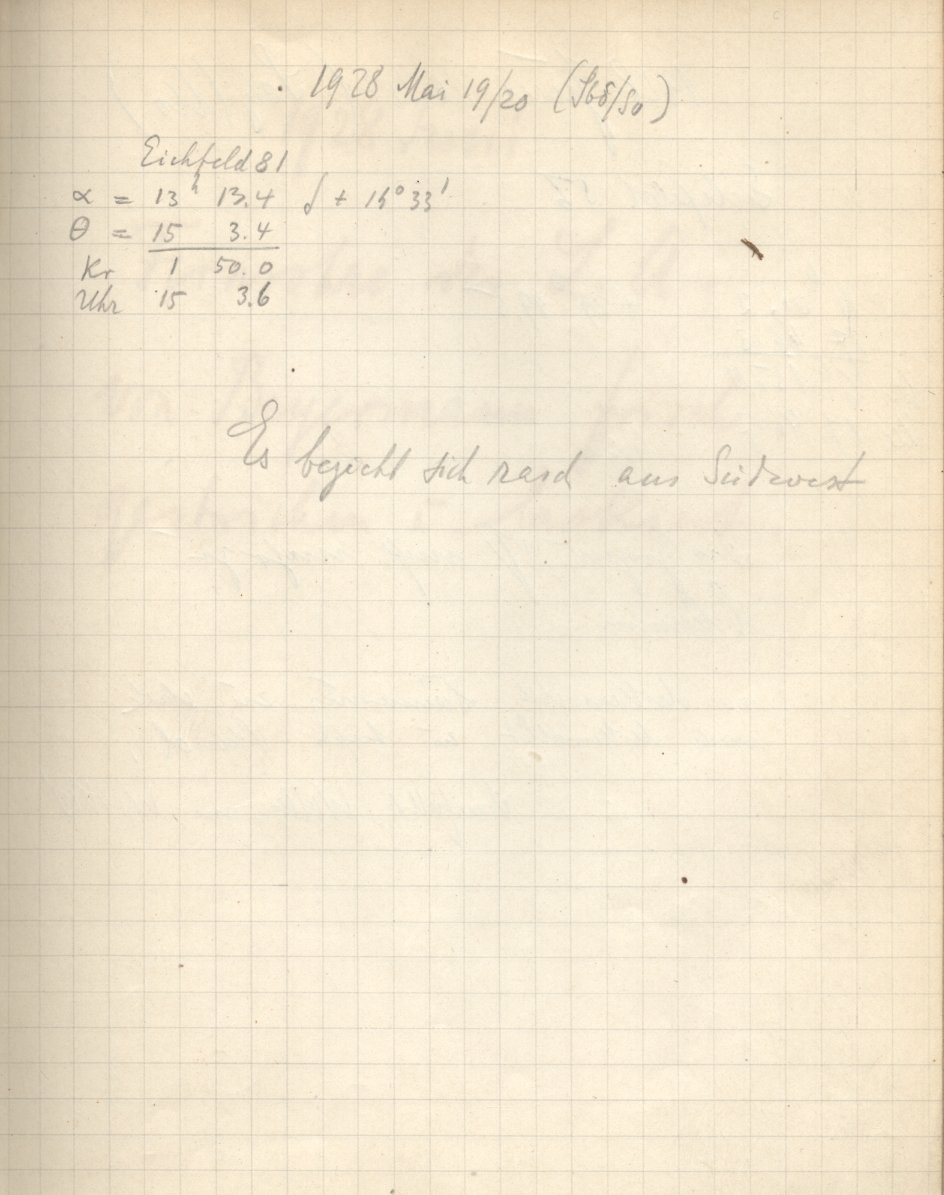 1928 Mai 19/20 (Sbd/So)
Eichfeld 81
α = 13ʰ 13.4 δ + 15° 33'
θ = 15 3.4
Kr 1 50.0
Uhr 15 3.6
Es bezieht sich rasch aus Südwest